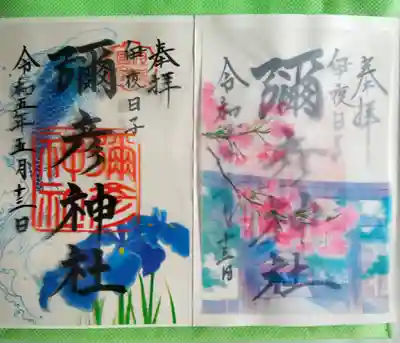 奉拝
伊夜日子
彌彦神社
彌彦
神社
令和五年五月十三日
奉拝
伊夜日子
彌彦神社
令和